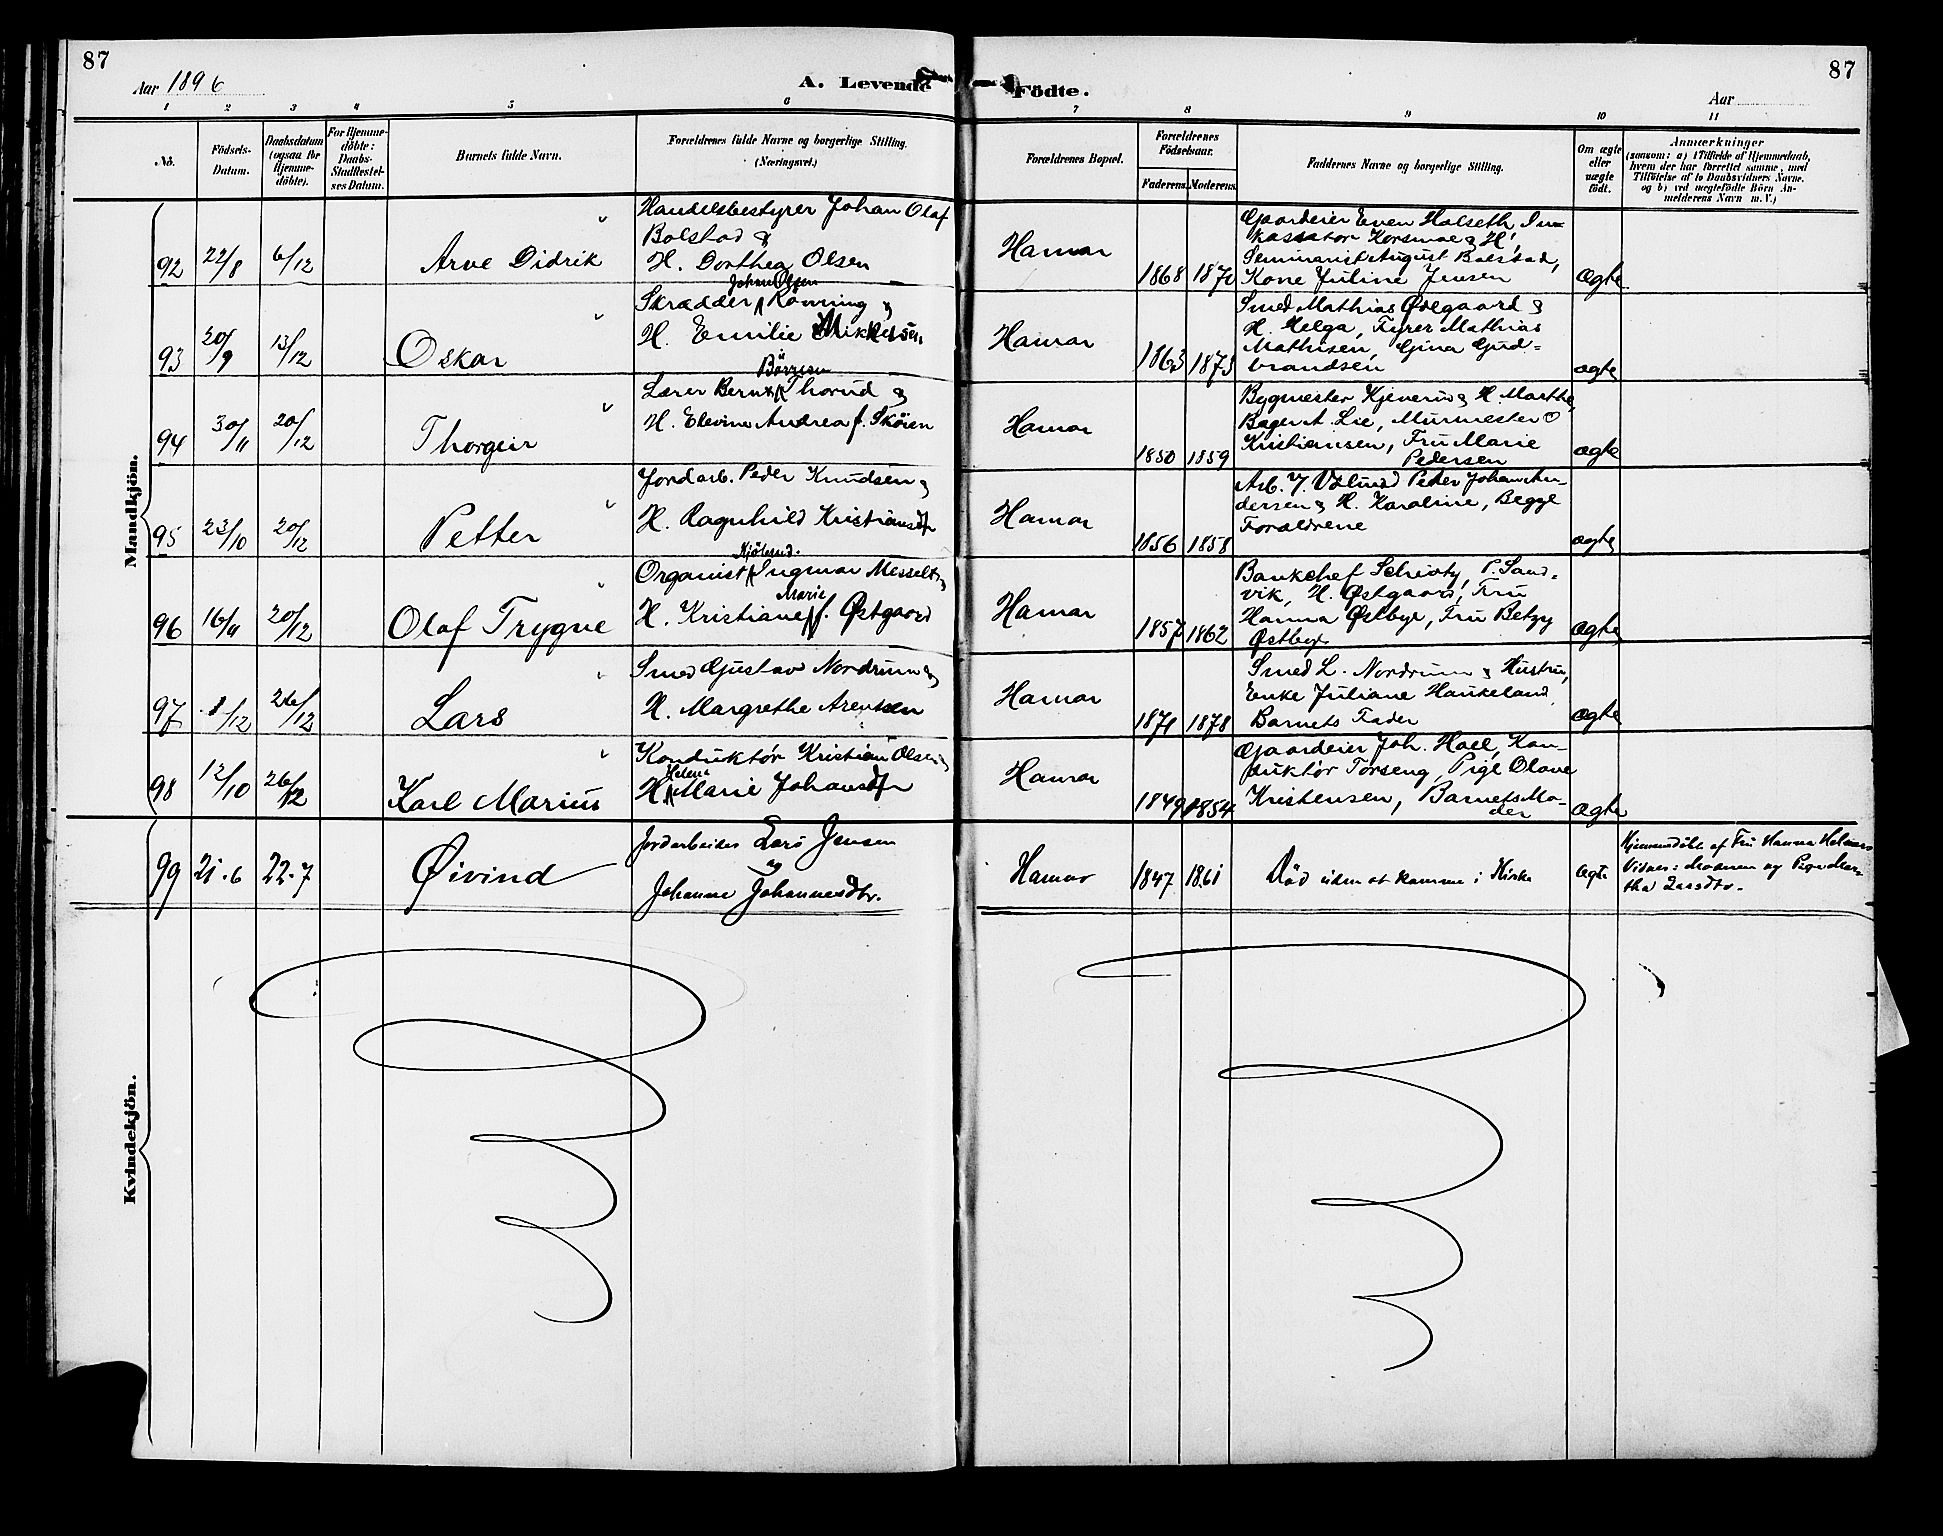 87
Aar 1896
A. Levende Födte.
87
Aar
1 2 3 4 5 6 7 8 9 10 11
No.
Födsels-
Datum.
Daabsdatum
(ogsaa for
Hjemme-
döbte).
For Hjemme-
döbte:
Daabs-
Stadfæstel-
ses Datum.
Barnets fulde Navn.
Forældrenes fulde Navne og borgerlige Stilling.
(Næringsvei.)
Forældrenes Bopæl.
Forældrenes
Födselsaar.
Faderens. Moderens.
Faddernes Navne og borgerlige Stilling.
Om ægte
eller
uægte
födt.
Anmærkninger
(saasom: a) i Tilfælde af Hjemmedaab,
hvem der har forrettet samme, med
Tilföielse af to Daabsvidners Navne.
og b) ved uægtefödte Börn An-
melderens Navn m. V.)
Mandkjön.
92 22/8 6/12
Arve Didrik
Handelsbestyrer Johan Olaf
Bolstad &
H. Dorthea Olsen
Hamar
1868
Gaardeier Even Halseth, In-
kassator Korsmoe & H,
Seminarist August Bolstad,
Kone Juline Jensen
Ægte
93 20/9 13/12
Oskar
Johan Olsen
Skrædder Rønning &
H. Emilie Mikkelsen
Hamar
1863 1873
Smed Mathias Ødegaard &
H. Helga, Fyrer Mathias
Mathisen, Gina Gud-
brandsen
ægte
94 30/11 20/12
Thorgeir
Börresen
Lærer Bernt Thorud &
H. Elevine Andrea f. Sköien
Hamar
1850 1859
Bygmester Kjeverud & H. Marthe,
Bager A. Lie, Murmester O
Kristiansen, Fru Marie
Pedersen
ægte
95 23/10 20/12
Petter
Jordarb. Peder Knudsen &
H. Ragnhild Kristiansdtr
Hamar
1856 1858
Arb. Peter Johan An-
dersen & H. Karoline, Begge
Forældrene
ægte
96 16/9 20/12
Olaf Trygve
Njölsund.
Organist Ingmar Messelt &
Marie
H. Kristiane f. Østgaard
Hamar
1857 1862
Bankchef Schiøtz, P. Sand-
vik, H. Østgaard, Fru
Hanna Østbye, Fru Betzy
Østbye
Ægte
97 8/12 26/12
Lars
Smed Gustav Nordrum &
H. Margrethe Arentsen
Hamar
1878
Smed L. Nordrum & Hustru,
Enke Juliane Haukeland,
Barnets Fader
ægte
98 12/10 26/12
Karl Marius
Konduktør Kristian Olsen &
Helene
H. Marie Johansdtr
Hamar
1849 1854
Gaardeier Joh. Hoel, Kon-
duktør Torseng, Pige Olave
Kristensen, Barnets Mo-
der
Ægte
99 21.6 22.7
Øivind
Jordarbeider Lars Jensen
og
Johanne Johannesdtr.
Hamar
1847 1861
Död uden at komme i Kirke
ægte
Hjemmedöbt af Fru Hanna
Vidner: Moderen og Pige Mar-
tha Larsdtr.
Kvindekjön.